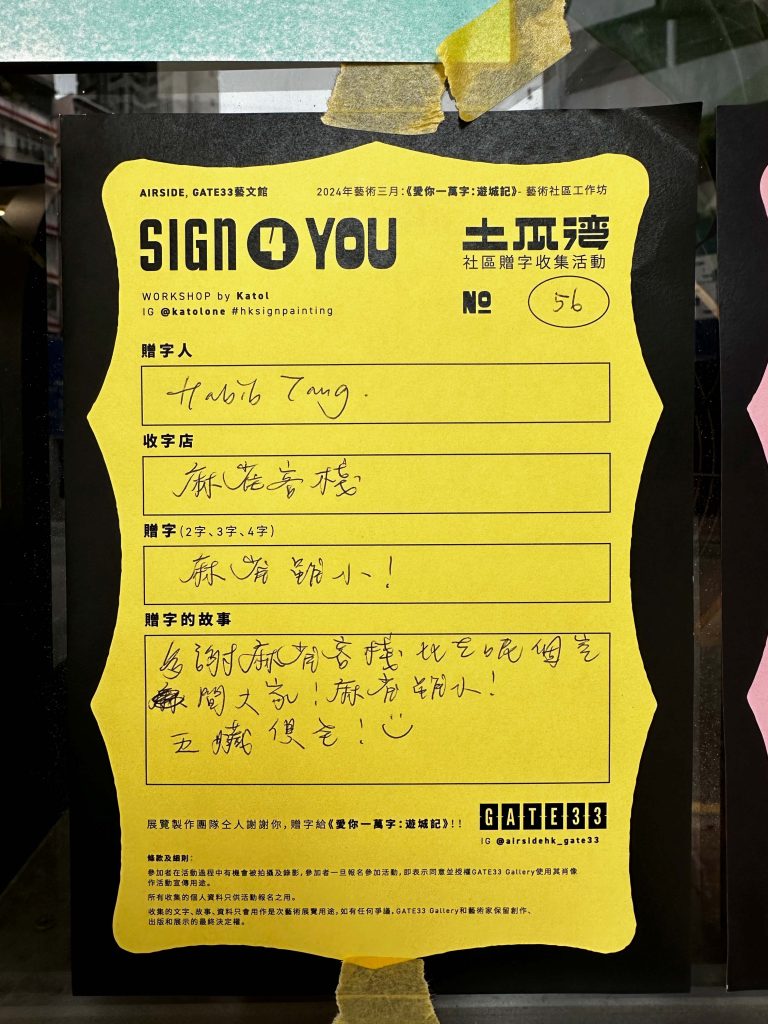 AIRSIDE, GATE33藝文館
2024年藝術三月：《愛你一萬字：遊城記》- 藝術社區工作坊
SIGN 4 YOU
土瓜灣
社區贈字收集活動
WORKSHOP by Katol
IG @katolone #hksignpainting
Nº 56
贈字人
Habib Tang.
收字店
麻雀客棧
贈字(2字、3字、4字)
麻雀雖小！
贈字的故事
多謝麻雀客棧比左呢個空
間大家！麻雀雖小！
五臟俱全！
展覽製作團隊仝人謝謝你，贈字給《愛你一萬字：遊城記》！！
GATE33
IG @airsidehk_gate33
條款及細則：
參加者在活動過程中有機會被拍攝及錄影，參加者一旦報名參加活動，即表示同意並授權GATE33 Gallery使用其肖像
作活動宣傳用途。
所有收集的個人資料只供活動報名之用。
收集的文字、故事、資料只會用作是次藝術展覽用途，如有任何爭議，GATE33 Gallery和藝術家保留創作、
出版和展示的最終決定權。